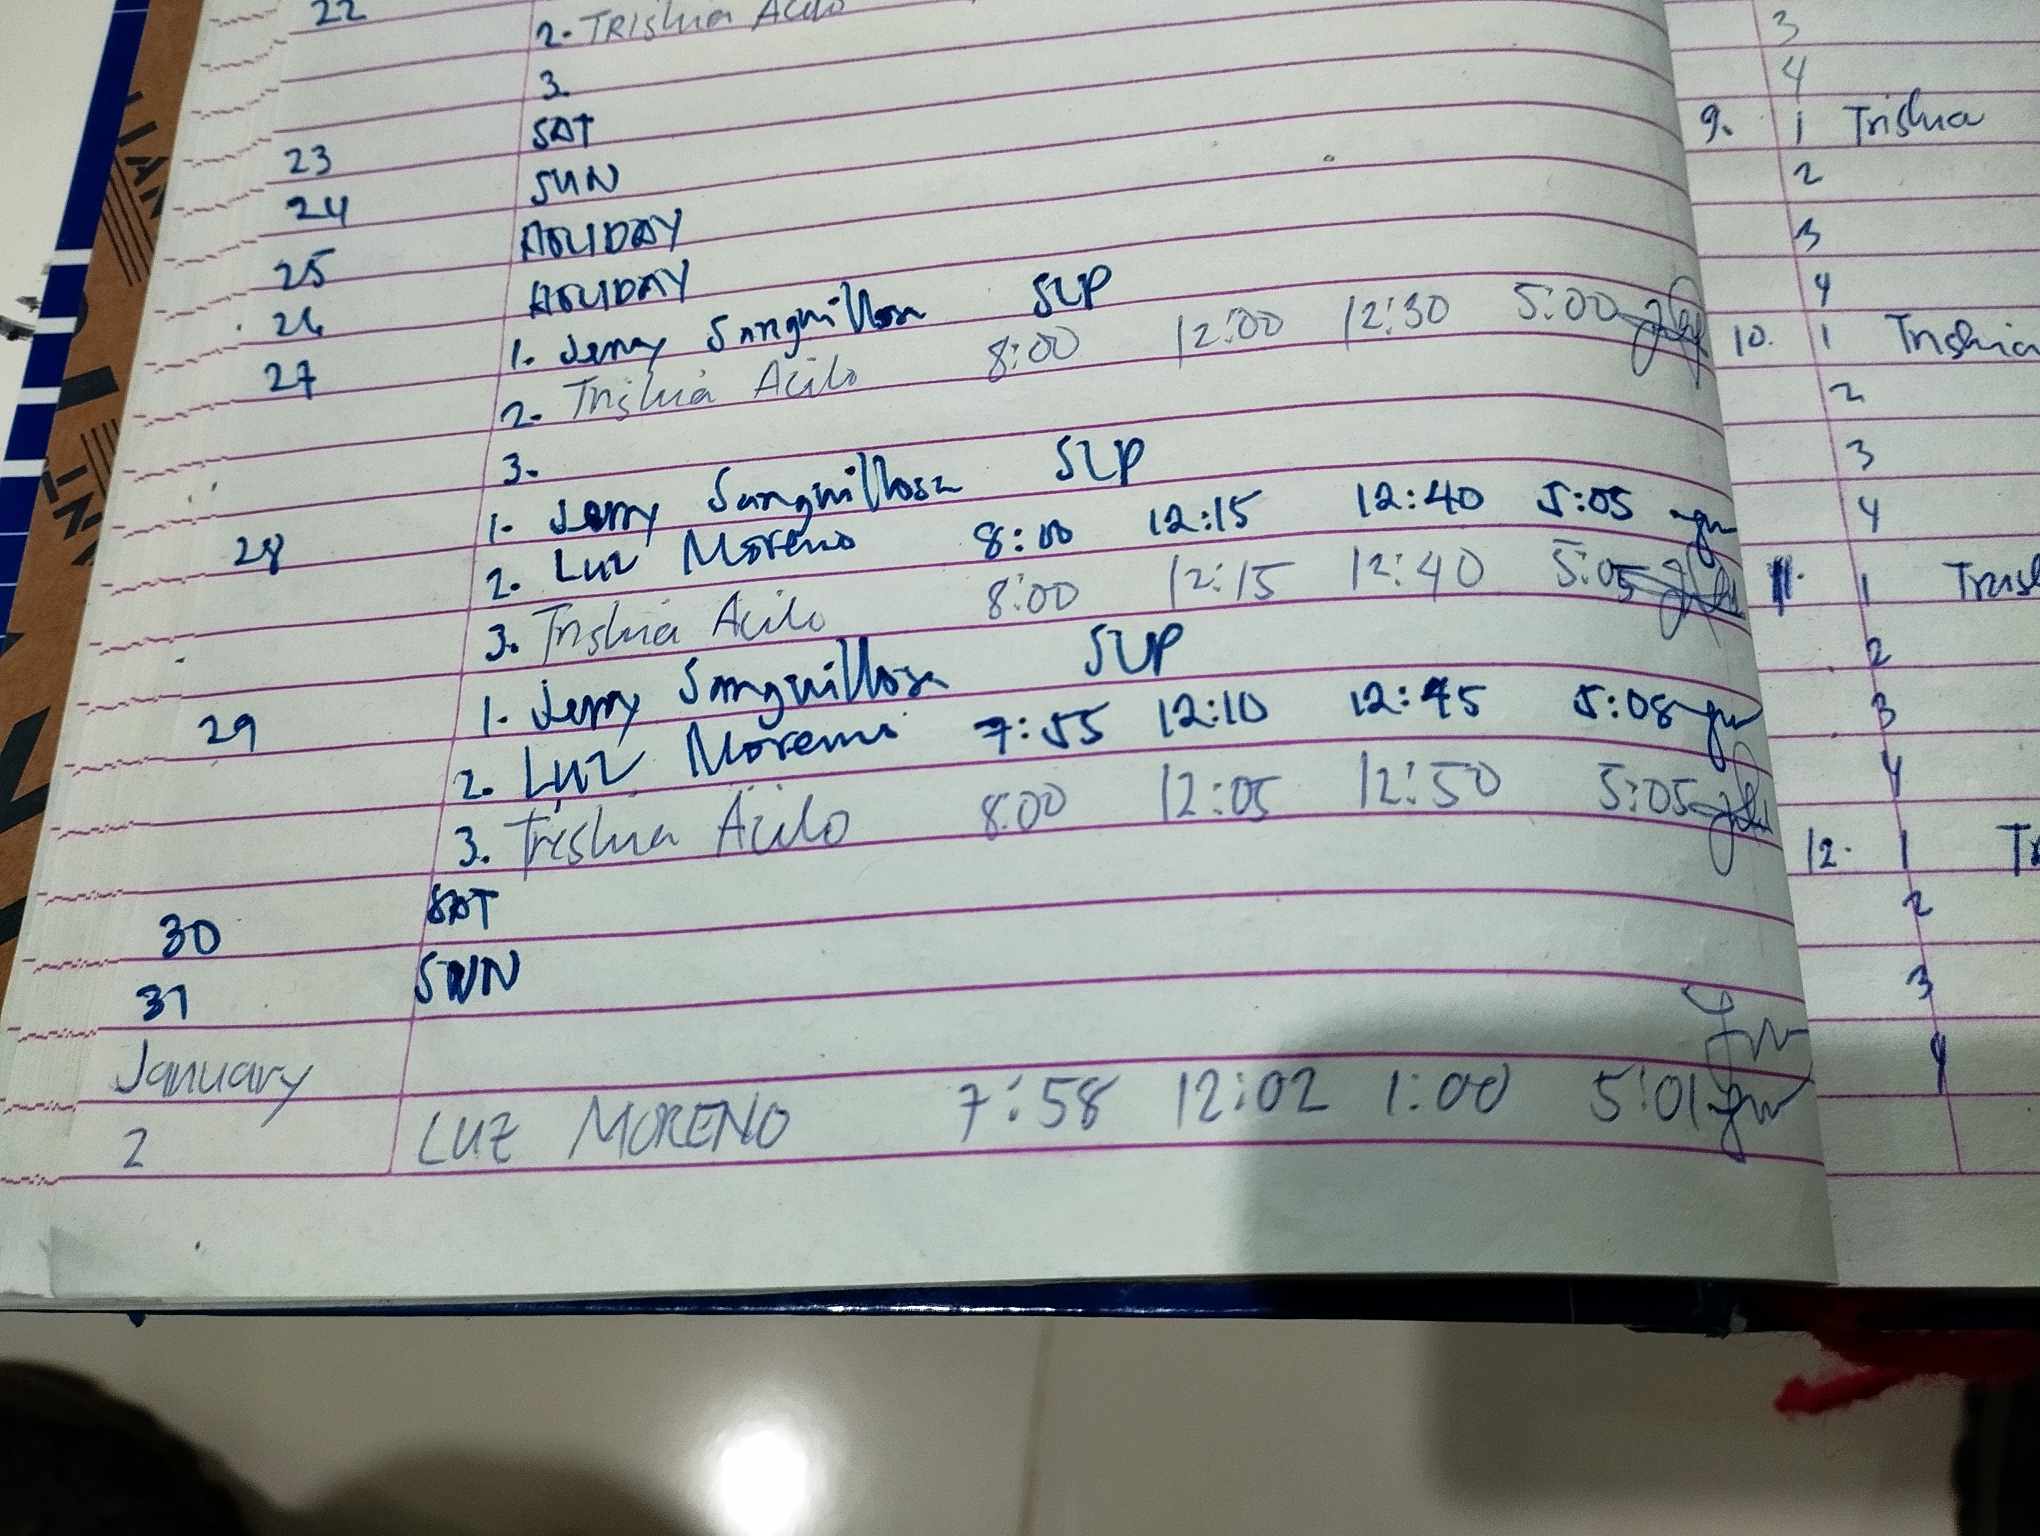 22
2. TRIShia Acilo
3.
23 SAT
24 SUN
25 HOLIDAY
26 HOLIDAY
27 1. Jerry Sanguillosa SLP
2. Trishia Acilo 8:00 12:00 12:30 5:00
3.
28 1. Jerry Sanguillosa SLP
2. Luz Moreno 8:00 12:15 12:40 5:05
3. Trishia Acilo 8:00 12:15 12:40 5:05
29 1. Jerry Sanguillosa SLP
2. Luz Moreno 7:55 12:10 12:45 5:08
3. Trishia Acilo 8:00 12:05 12:50 5:05
30 SAT
31 SUN
January
2 LUZ MORENO 7:58 12:02 1:00 5:01
3
4
9. 1 Trishia
2
3
4
10. 1 Trishia
2
3
4
11. 1
2
3
4
12. 1
2
3
4